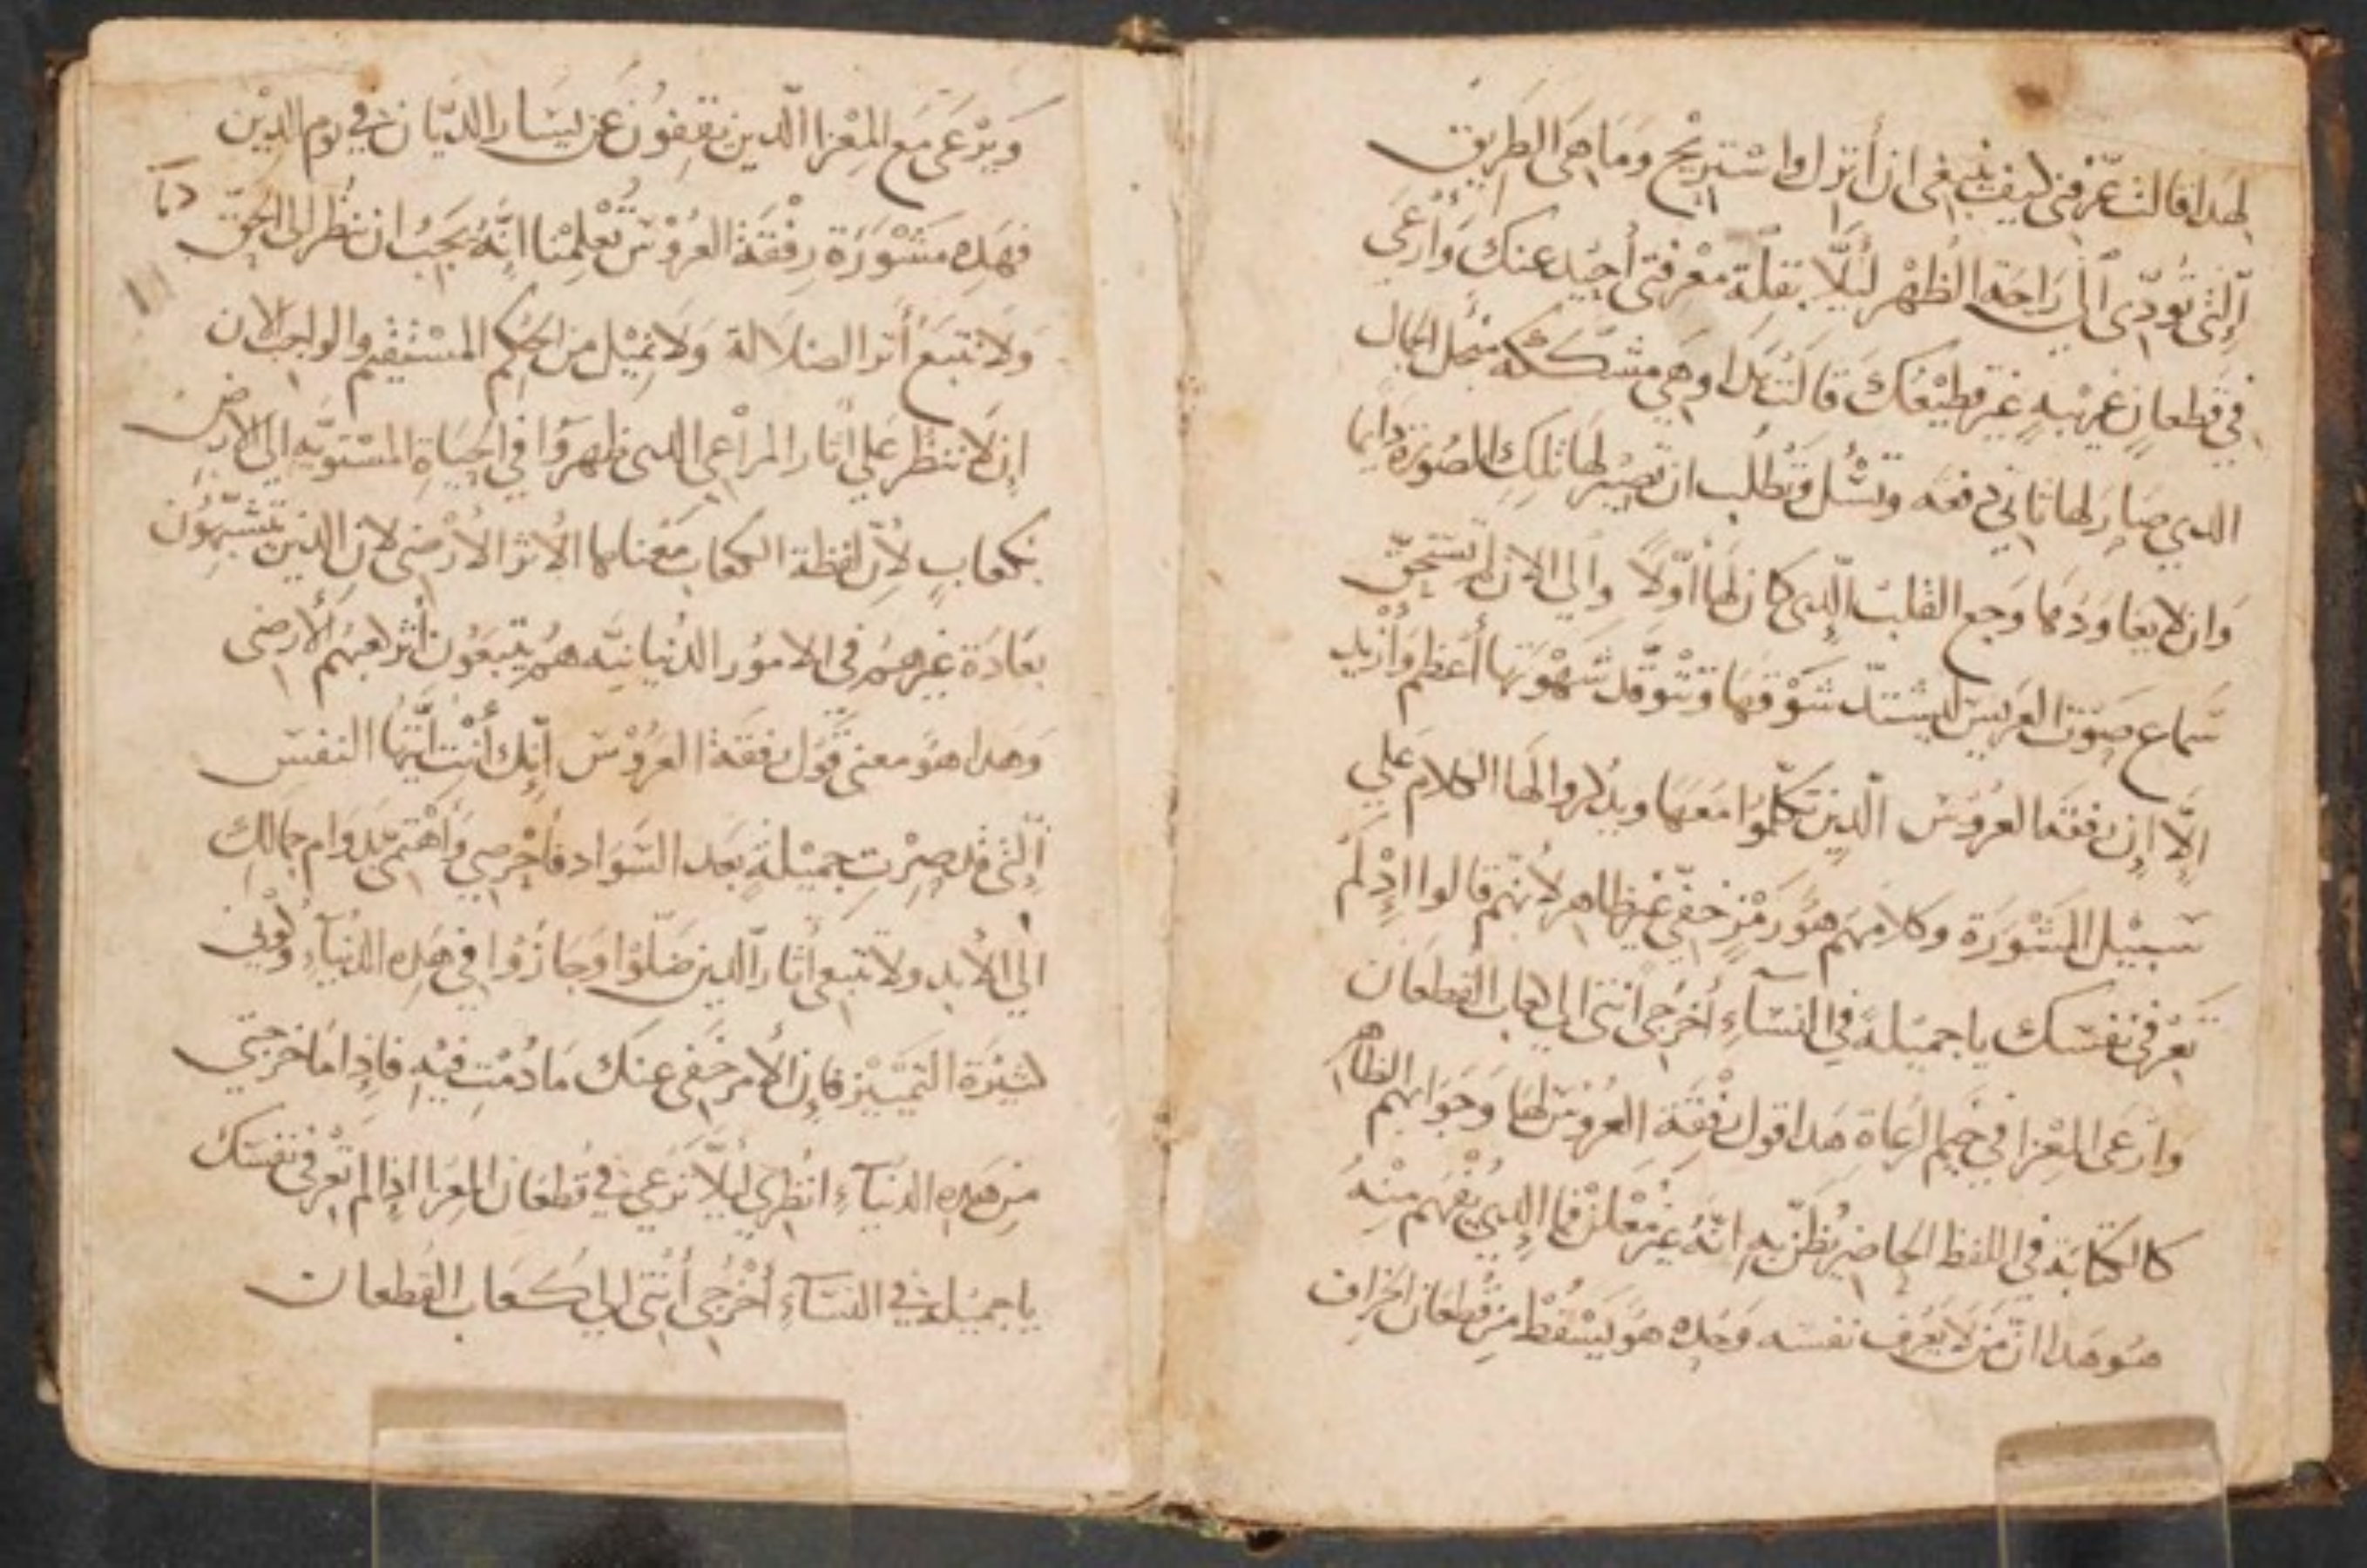 لهدا قالت عرّفني كيف ينبغي ان أنزل واستريح وما هى الطريق
اِلّتى تؤدّى اِلى راحة الظهر ليُلّا بقلّة معْرفتى أحيد عنك وَأرْعَي
في قطعانٍ غريبهٍ غير قطيْعك قالت هدا وهي متشككة من أجل الجمال
الدي صَار لها ثاني دفعه وتسْئل وتطلب ان تصيْر لها تلك الصُورة دايما
وان لا يعاودها وجع القلب الّدى كان لها أوّلاً وإلي الان لم تستحقّ
سَماع صَوْت العريس ليشتدّ شوْقها وتتوقّد شهْوتها أعظم وأزيد
اِلّا اِن رفقة العروْس الّدين تكلّموا معَها ويدكروا لها الكلام علي
سَبيْل المشْوَرَة وكلامهم هوَ رمْز خفي غير ظاهر لأنهّم قالوا اِدْ لم
تعْرفى نفسَك يا جميْلة في النسَآء أخرُجي أنتى الى كعاب القطعان
وارْعى المعْزا في خيم الرعاة هدا قول رفْقة العروس لها وجوابهم الظاهر
كالكتابة في اللفظ الحاضر يُظنّ به انّهُ غير مُعْلن فاما الدي يُفْهم منْهُ
هو هدا انّ من لا يعْرف نفسَه وحْده هو يسْقط من قُطعَان الخراف
ويرْعَى مع المعْزا الّدين يقفُون عَن يسَار الديّان في يوم الديْن
فهَده مَشْوَرَة رِفْقَة العروْس تُعْلمنا انّهُ يَجبُ ان ننْظر الى الحقّ دايما
وَلا نتبَع أثر الضلالة وَلا نميْل من الحُكم المسْتقيْم والواجب الان
اِن لا ننظر علي أثار المراعى الدى ظهروا في الحياة المسْتويَه الي الارض
بكعابٍ لأنّ لفظة الكعاب معْناها الأثر الأرْضى لان الدين يتشبّهون
بعَادَة غيرهم في الامور الدُنيانيَّه هم يتبَعُون أثر كعبهُم الأرضى
وَهدا هوَ معنى قول رفقة العروْس اِنّك أنْت أيّتها النفسِ
اِلّتى قد صِرْت جميْلة بعد السَوَاد فأحْرصي وَأهْتمّى بدوَام جمالك
الي الأبد ولا تتبعى أثار الدين ضَلّوا وجَازُوا في هده الدُنيآء وكُونى
كثيْرة التميّيز فاِنّ الأمر خَفى عنك مَا دُمْت فيْه فاِدا ما خرجتي
من هده الدنيآء انْظرى ليُلّا ترْعي في قُطعَان المعزا اِدا لم تعْرفى نفسَك
يا جميْلة في النسَآء أخْرُجى أنتى الى كعَاب القطعان